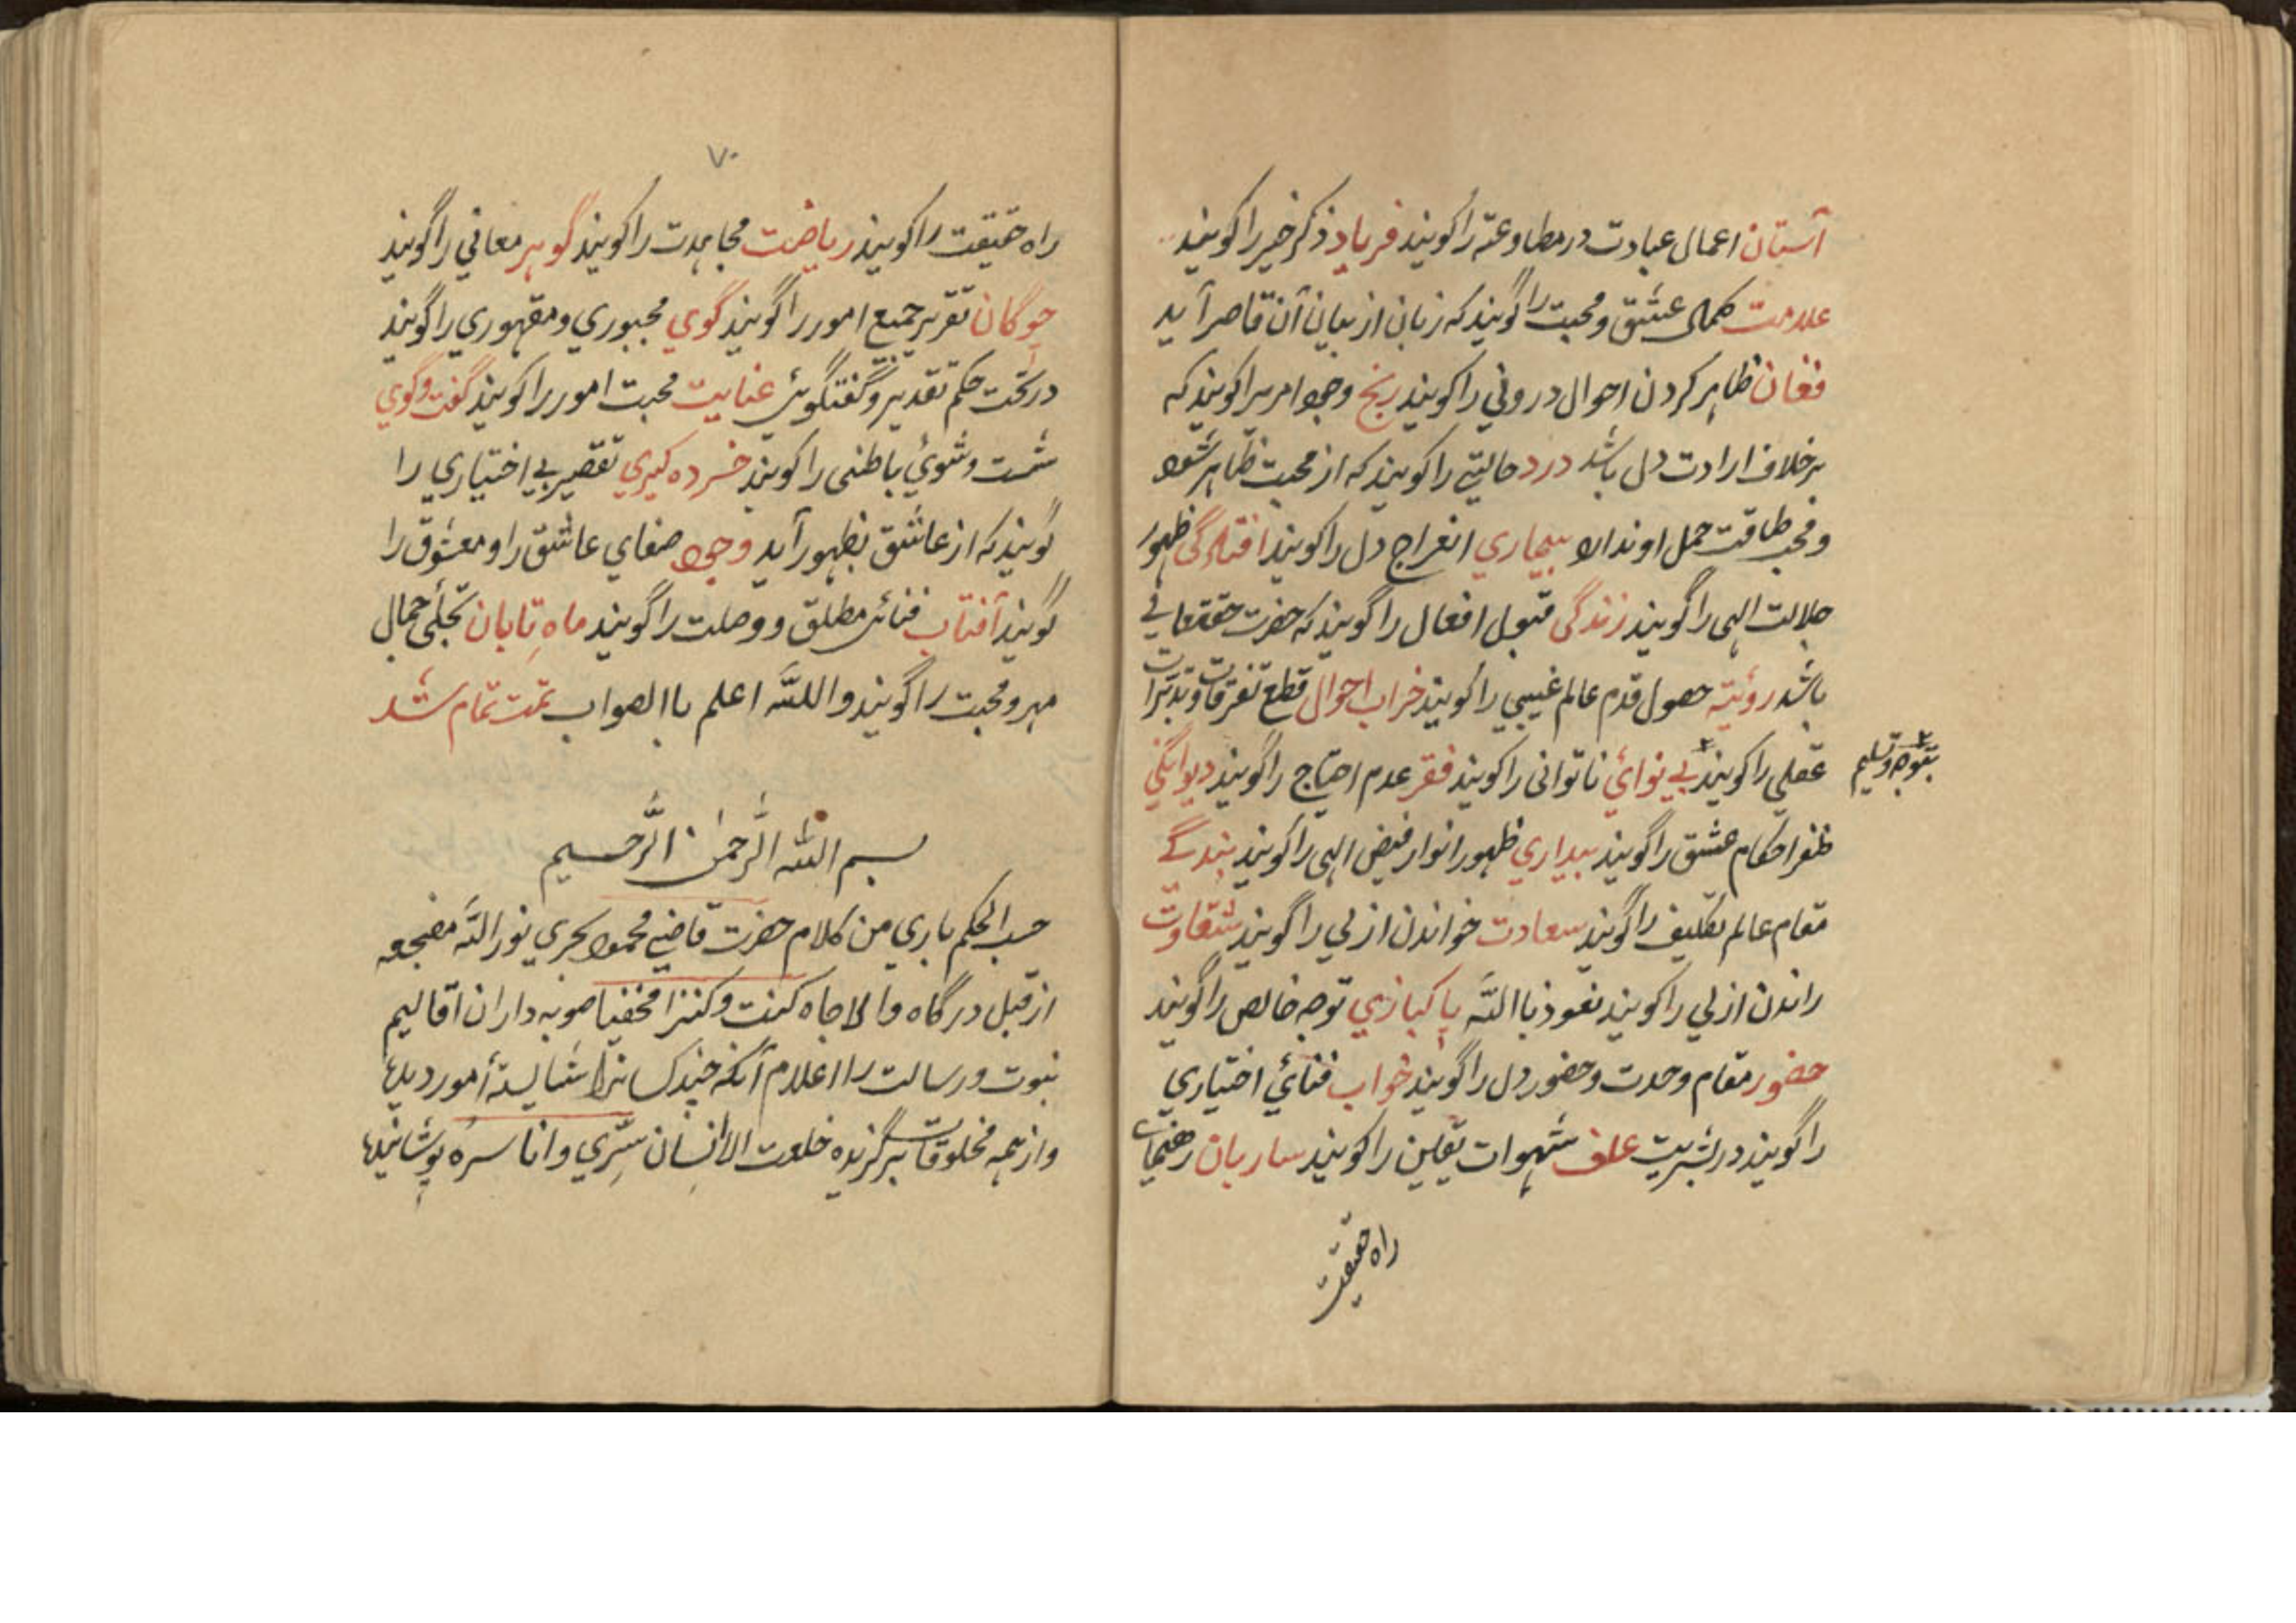 آستان اعمال عبادت در مطاوعته را کویند فریاد ذکر خیر را کویند
علامت کمالی عشق و محبت را کویند که زبان از بیان آن قاصر آید
فغان ظاہر کردن احوال درونی را کویند رنج وجود امریرا کویند که
برخلاف ارادت دل باشد درد حالیتے را کویند که از محبت ظاہر شود
و محب طاقت حمل او ندارد بیماری انفراج دل را کویند افتادگی ظہور
جلالت الہی را کویند زندگی قبول افعال را گویند که حضرت حقتعالے
باشد رؤیته حصول قدم عالم غیبی را کویند خراب احوال قطع تفرقات و تدبیرات
عقلی را کویند بے نوائی ناتوانی را کویند فقر عدم احتیاج را گویند دیوانگی
بتوجه وتسلیم
ظفر احکام عشق را گویند بیداری ظہور انوار فیض الہی را کویند بندگے
مقام عالم تکلیف را گویند سعادت خواندن ازلی را گویند شقاوت
راندن ازلی را کویند نعوذ باالله پاکبازی توجه خالص را گویند
حضور مقام وحدت و حضور دل را گویند خواب فنائی اختیاری
را گویند در بشریت علف شہوات ثقلین را کویند ساربان رهنمای
راه حقیقت
۷۰
راه حقیقت را کویند ریاضت مجاہدت را کویند گوہر معانی را گویند
چوگان تقریر جمیع امور را گویند گوی مجبوری و مقہوری را گویند
در تحت حکم تقدیر و گفتگویی عنایت محبت امور را کویند گفت و گوی
شست و شوئ باطنی را کویند خرده کیری تقصیر بے اختیاری را
گویند که از عاشق بظہور آید وجود صفای عاشق را و معشوق را
گویند آفتاب فنائی مطلق و وصلت را گویند ماهِ تابان تجلّی جمال
مہر و محبت را گویند والله اعلم باالصواب تمت تمام شد
بسم الله الرحمن الرحیم
حسب الحکم باری من کلام حضرت قاضی محمود بحری نور الله مضجعه
از قبل درگاه والا جاه کنت و کنزا مخفیا صوبه داران اقالیم
نبوت و رسالت را اعلام آنکه چند کسانرا شایستهٔ امور دیدہ
و از ہمه مخلوقات برگزیده خلعت الانسان سِرّی و انا سره پوشانیده